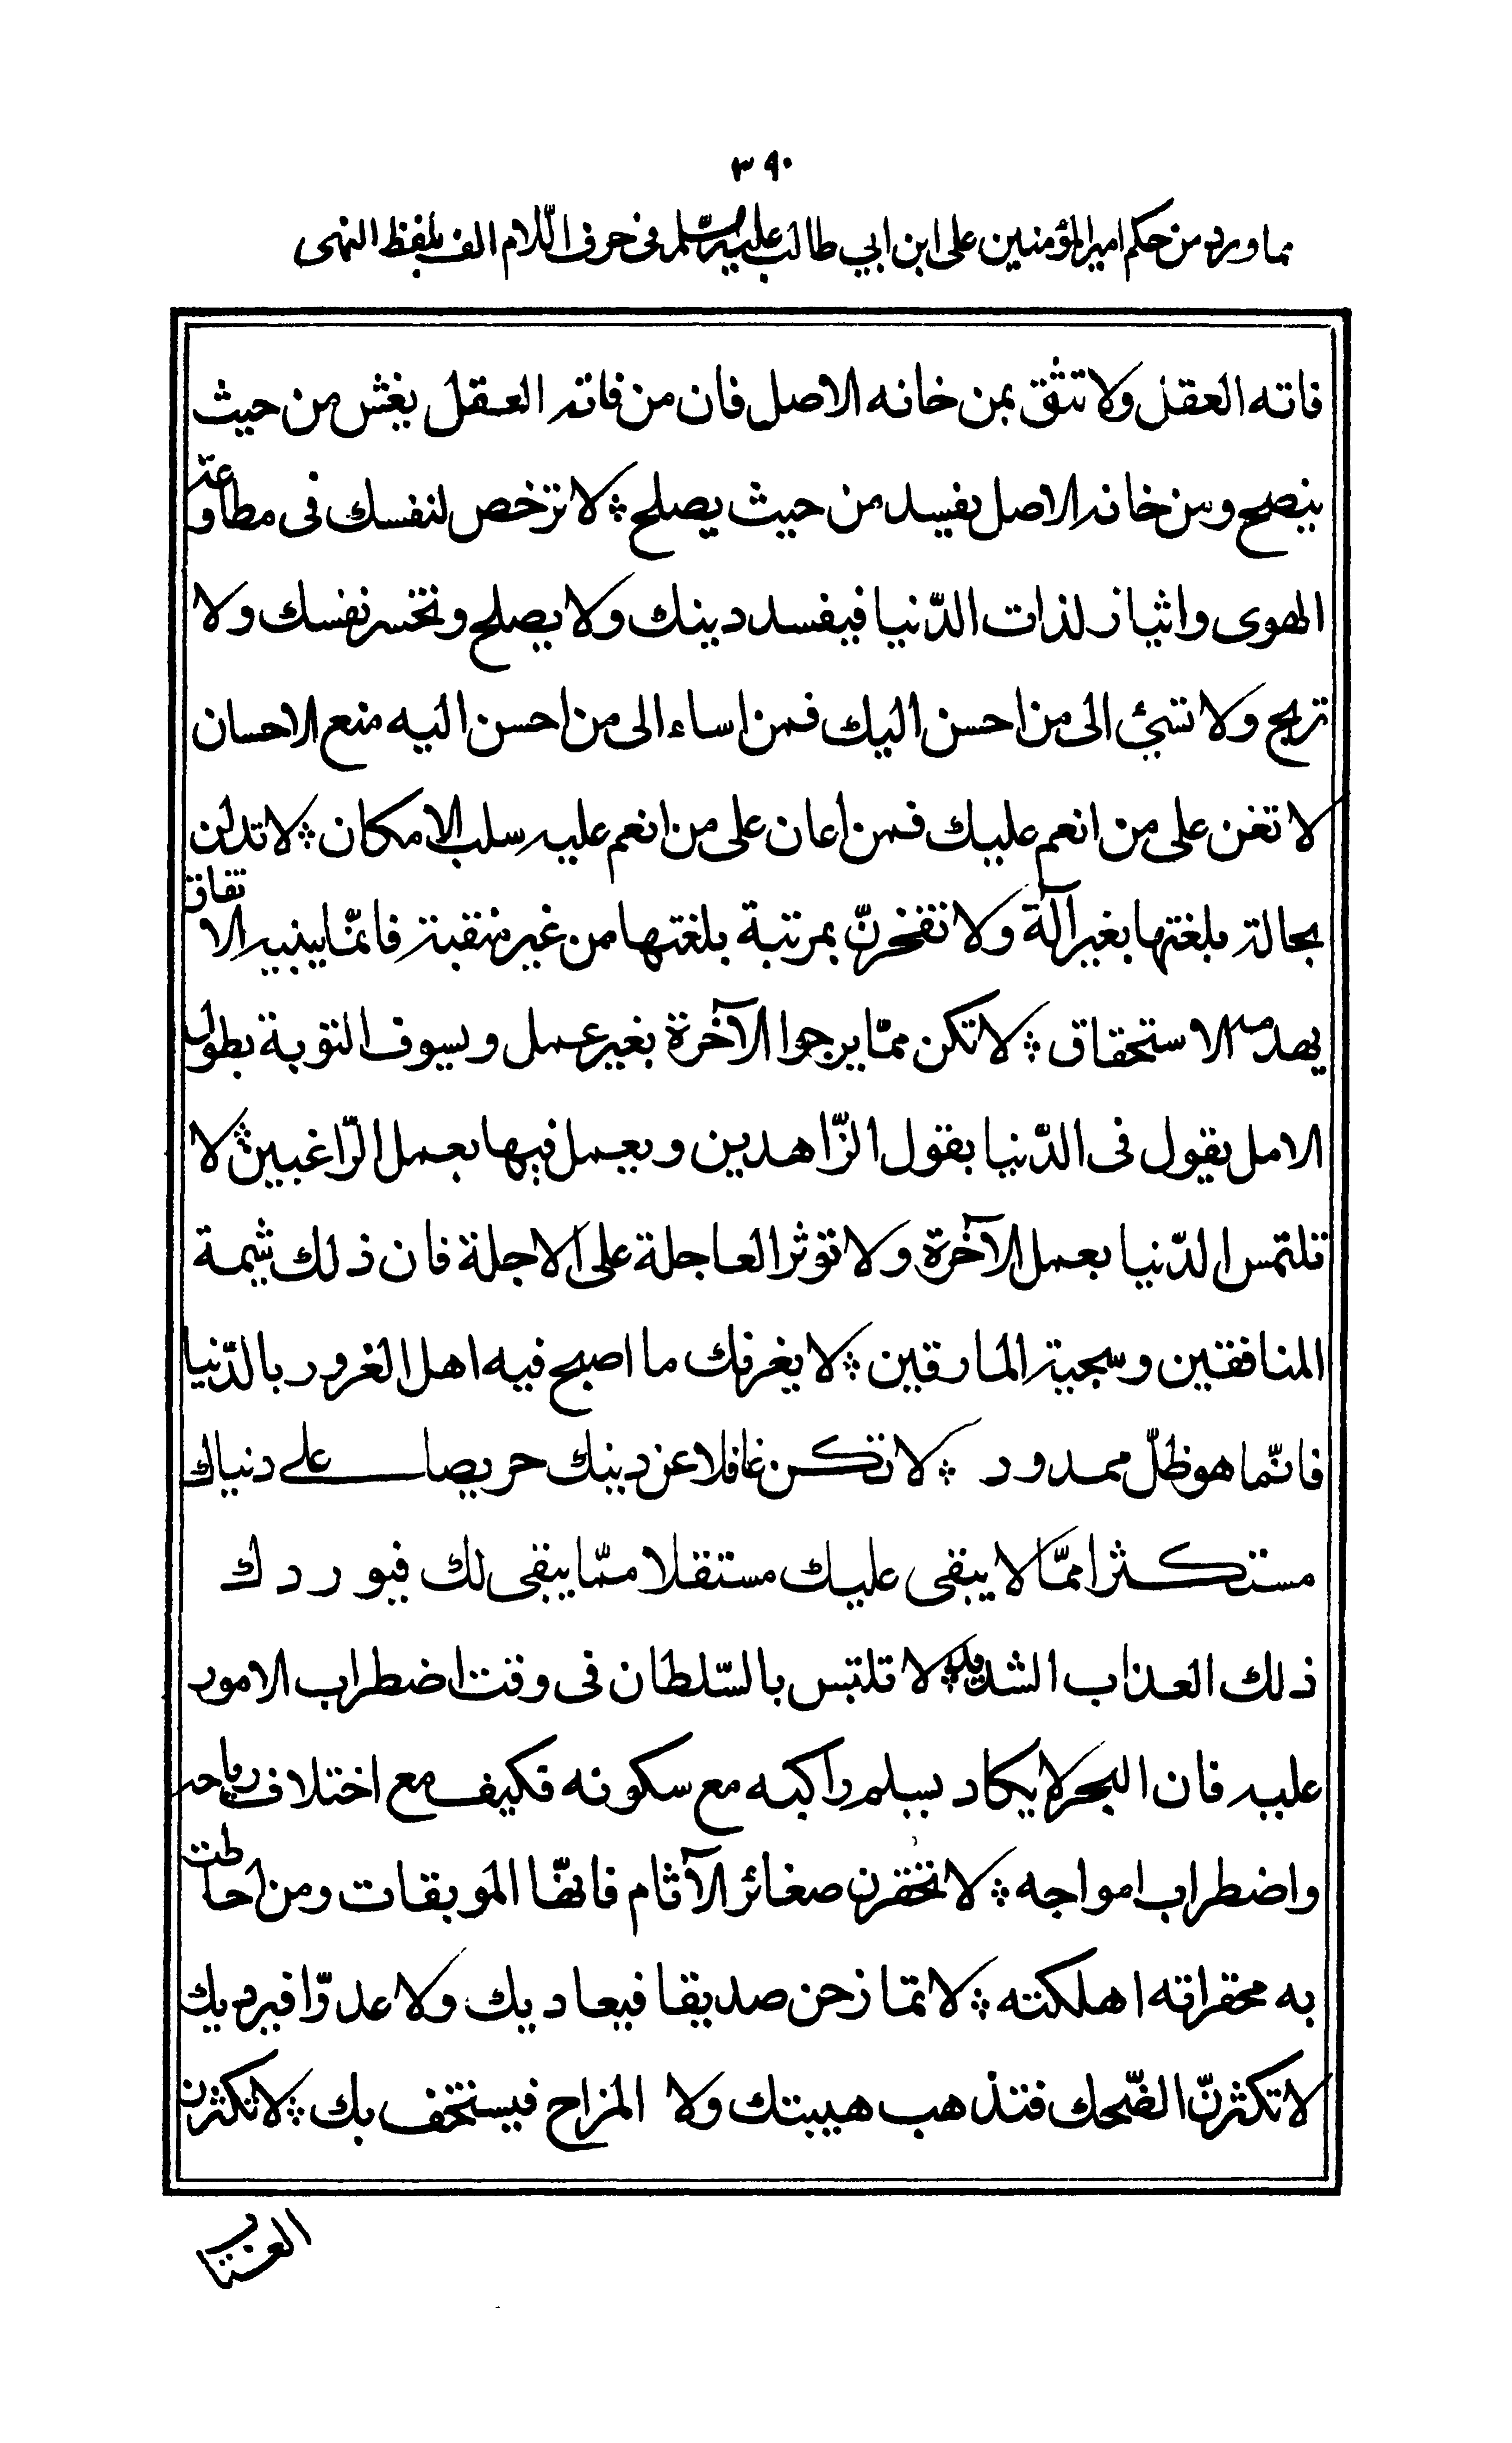 ٣٩٠
مما ورد من حكم امير المؤمنين على ابن ابي طالب عليه السّلم فى حرف اللّام الف بلفظ النهى
فاته العقل ولا تثق بمن خانه الاصل فان من فاته العقل يغش من حيث
ينصح ومن خانه الاصل يفسد من حيث يصلح ؞ لا ترخص لنفسك فى مطاوعة
الهوى واثيار لذات الدّنيا فيفسد دينك ولا يصلح وتخسر نفسك ولا
تربح ولا تسئ الى من احسن اليك فمن اساء الى من احسن اليه منع الاحسان
لا تعن على من انعم عليك فمن اعان على من انعم عليه سلب الامكان ؞ لا تدلن
بحالة بلغتها بغير آلة ولا تفخرنّ بمرتبة بلغتها من غير منقبة فانمّا يبنيه الاتفاق
يهدمه الاستحقاق ؞ لا تكن ممّا يرجوا الآخرة بغير عمل ويسوف التوبة بطول
الامل يقول فى الدّنيا بقول الزّاهدين ويعمل فيها بعمل الرّاغبين ؞ لا
تلتمس الدّنيا بعمل الآخرة ولا تؤثر العاجلة على الاجلة فان ذلك شيمة
المنافقين وسجية المارقين ؞ لا يغرنك ما اصبح فيه اهل الغرور بالدّنيا
فانّما هو ظلّ ممدود ؞ لا تكن غافلا عن دينك حريصا على دنياك
مستكثرا ممّا لا يبقى عليك مستقلا ممّا يبقى لك فيوردك
ذلك العذاب الشديد ؞ لا تلتبس بالسّلطان فى وقت اضطراب الامور
عليه فان البحر لا يكاد يسلم راكبه مع سكونه فكيف مع اختلاف رياحه
واضطراب امواجه ؞ لا تحقرن صغائر الآثام فانهّا الموبقات ومن احاطت
به محقراته اهلكته ؞ لا تمازحن صديقا فيعاديك ولا عدوّا فيرديك
لا تكثرنّ الضّحك فتذهب هيبتك ولا المزاح فيستخف بك ؞ لا تكثرن
العتاب